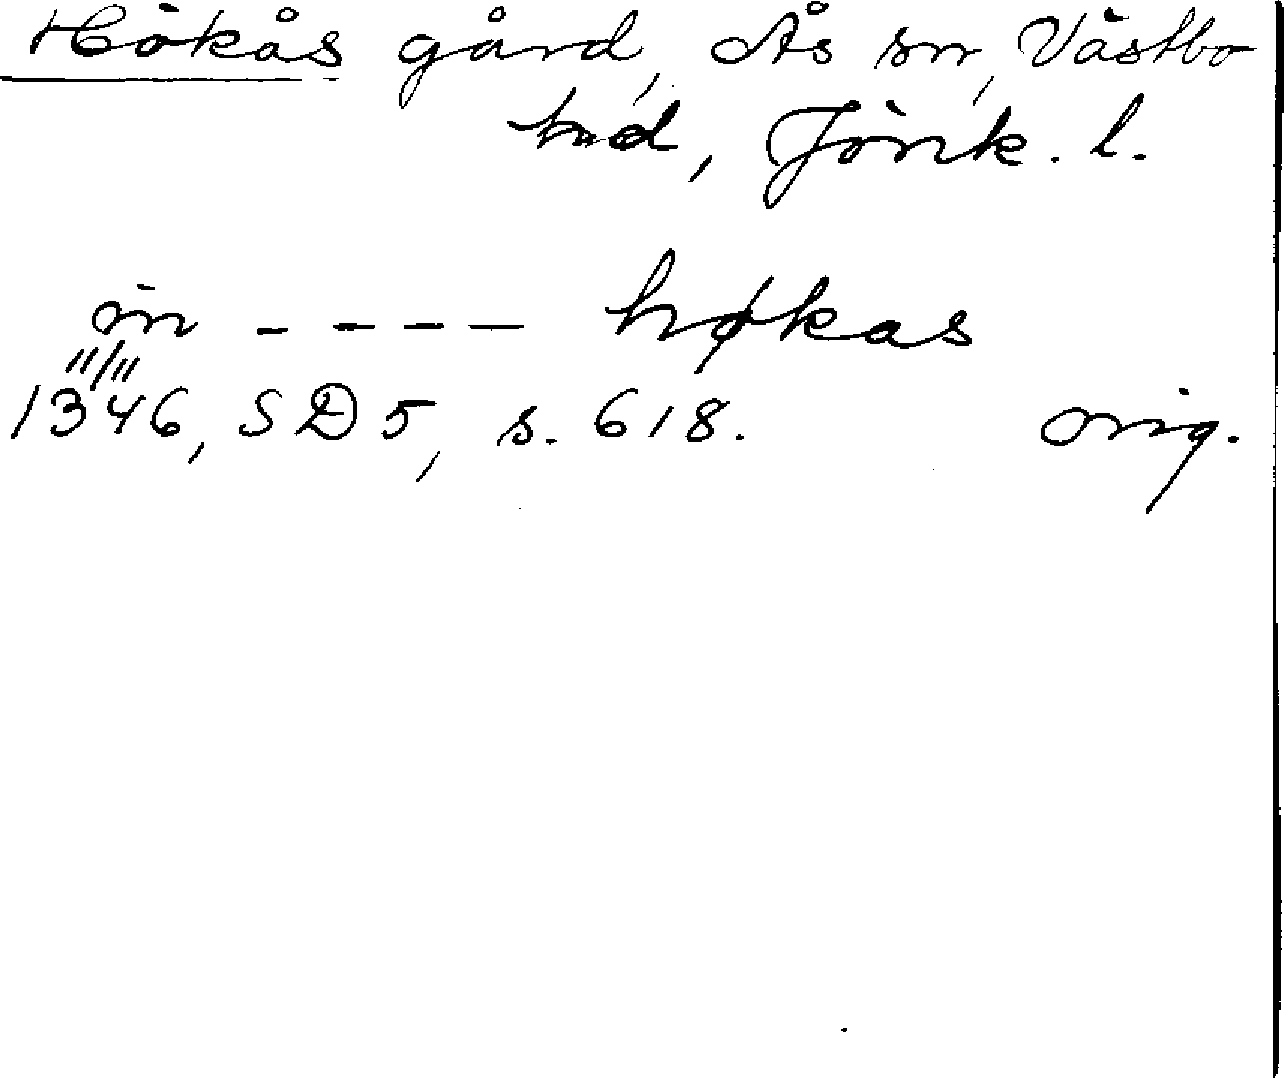 Hökås gård, Ås sn, Västbo
hd, Jönk. l.
in - - - - høkas
11/11
1346, SD 5, s. 618. orig.